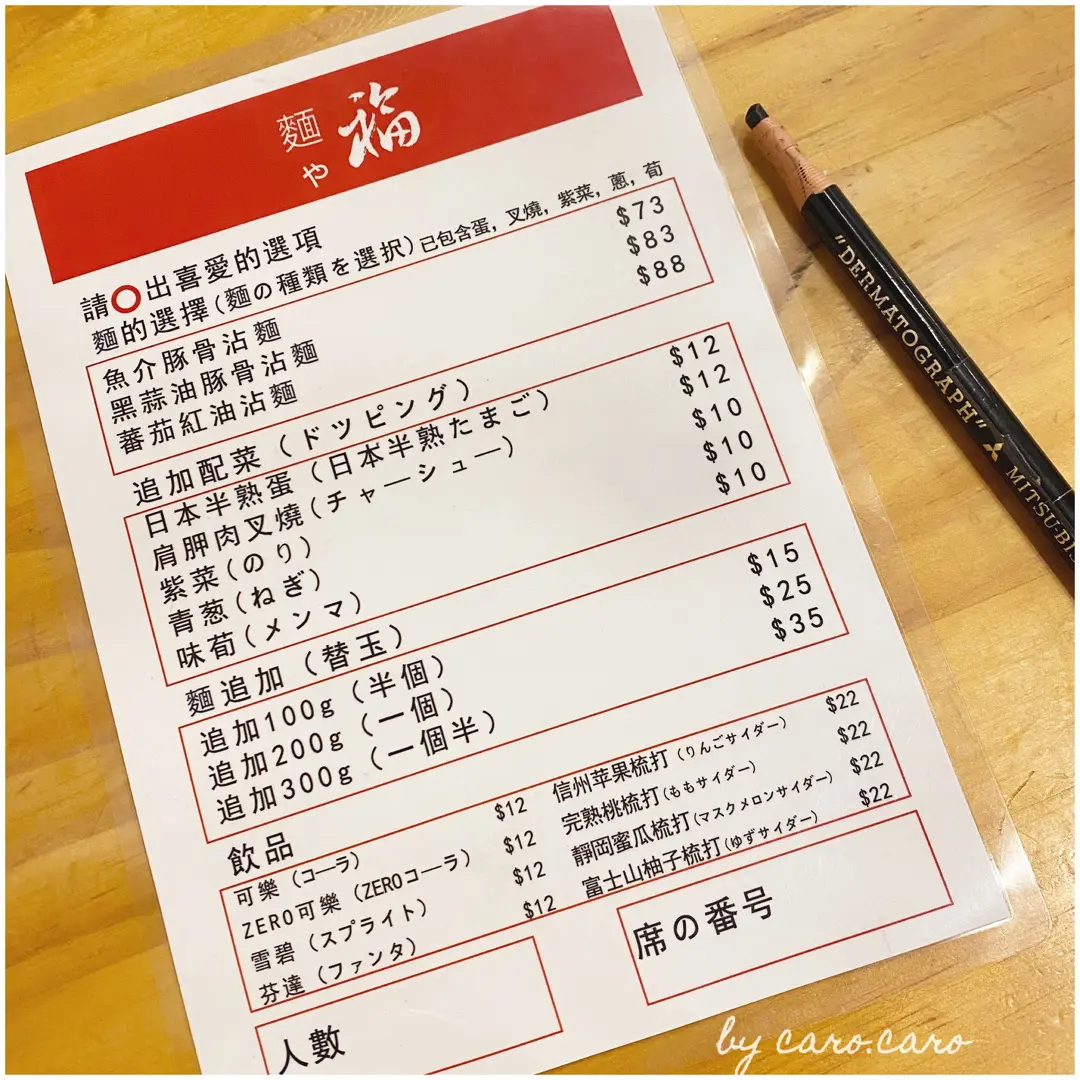 麵や福
請⭕出喜愛的選項
麵的選擇(麵の種類を選択)已包含蛋，叉燒，紫菜，蔥，荀
魚介豚骨沾麵 $73
黑蒜油豚骨沾麵 $83
蕃茄紅油沾麵 $88
追加配菜（ドツピング）
日本半熟蛋（日本半熟たまご） $12
肩胛肉叉燒(チャーシュー) $12
紫菜(のり) $10
青葱(ねぎ) $10
味荀(メンマ) $10
麵追加（替玉）
追加100g（半個） $15
追加200g（一個） $25
追加300g（一個半） $35
飲品
可樂（コーラ） $12
ZERO可樂（ZEROコーラ） $12
雪碧（スプライト） $12
芬達（ファンタ） $12
信州苹果梳打（りんごサイダー） $22
完熟桃梳打(ももサイダー) $22
靜岡蜜瓜梳打(マスクメロンサイダー) $22
富士山柚子梳打(ゆずサイダー) $22
人數
席の番号
"DERMATOGRAPH" MITSU-BIS
by caro.caro